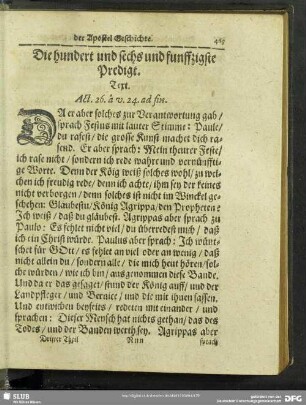 der Apostel Geschichte.
Die hundert und sechs und funffzigste
Predigt.
Text.
Act. 26. à v. 24. ad fin.
DA er aber solches zur Verantwortung gab/
sprach Festus mit lauter Stimme: Paule/
du rasest/ die grosse Kunst machet dich ra-
send. Er aber sprach: Mein theurer Feste/
ich rase nicht/ sondern ich rede wahre und vernünffti-
ge Worte. Denn der König weiß solches wohl/ zu wel-
chen ich freudig rede/ denn ich achte/ ihm sey der keines
nicht verborgen/ denn solches ist nicht im Winckel ge-
schehen: Gläubestu/ König Agrippa/ den Propheten?
Ich weiß/ daß du gläubest. Agrippas aber sprach zu
Paulo: Es fehlet nicht viel/ du überredest mich/ daß
ich ein Christ würde. Paulus aber sprach: Ich wünt-
schet für GOtt/ es fehlet an viel oder an wenig/ daß
nicht allein du/ sondern alle/ die mich heut hören/ sol-
che würden/ wie ich bin/ ausgenommen diese Bande.
Und da er das gesaget/ stund der König auff/ und der
Landpfleger/ und Bernice/ und die mit ihnen sassen.
Und entwichen beyseits/ redeten mit einander/ und
sprachen: Dieser Mensch hat nichts gethan/ das des
Todes/ und der Banden werth sey. Agrippas aber
Dritter Theil Nnn sprach
SLUB
DFG